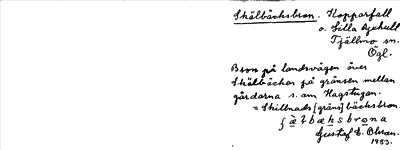 Skälbäcksbron. Kopparfall
o. Lilla Axhult
Tjällmo sn.
Ögl.
Bron på landsvägen över
Skälbäcken på gränsen mellan
gårdarna s. om Hagstugan.
= Skillnads [gräns] bäcksbron.
Gustaf E. Olsson.
1933.